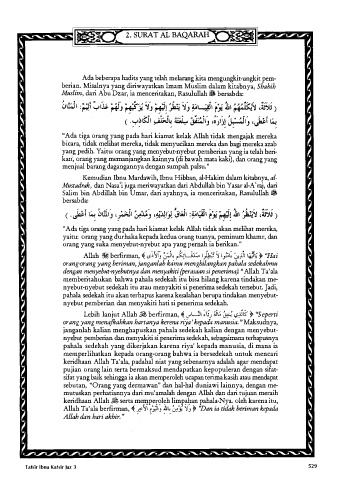 2. SURAT AL BAQARAH
Ada beberapa hadits yang telah melarang kita mengungkit-ungkit pem-
berian. Misalnya yang diriwayatkan Imam Muslim dalam kitabnya, Shahih
Muslim, dari Abu Dzar, ia menceritakan, Rasulullah ﷺ bersabda:
( ثَلاَثَةٌ، لاَيُكَلِّمُهُمُ اللهُ يَوْمَ الْقِيَـامَةِ وَلاَ يَنْظُرُ إِلَيْهِمْ وَلاَ يُزَكِّيْهِمْ وَلَهُمْ عَذَابٌ أَلِيْمٌ: الْمَنَّانُ
بِمَا أَعْطَى، وَالْمُسْبِلُ إِزَارَهُ، وَالْمُنَفِّقُ سِلْعَتَهُ بِالْحَلْفِ الْكَاذِبِ. )
"Ada tiga orang yang pada hari kiamat kelak Allah tidak mengajak mereka
bicara, tidak melihat mereka, tidak menyucikan mereka dan bagi mereka azab
yang pedih. Yaitu orang yang menyebut-nyebut pemberian yang ia telah beri-
kan, orang yang memanjangkan kainnya (di bawah mata kaki), dan orang yang
menjual barang dagangannya dengan sumpah palsu."
Kemudian Ibnu Mardawih, Ibnu Hibban, al-Hakim dalam kitabnya, al-
Mustadrak, dan Nasa'i juga meriwayatkan dari Abdullah bin Yasar al-A'raj, dari
Salim bin Abdillah bin Umar, dari ayahnya, ia menceritakan, Rasulullah ﷺ
bersabda:
( ثَلاَثَةٌ، لاَيَنْظُرُ اللهُ إِلَيْهِمْ يَوْمَ الْقِيَامَةِ: الْعَاقُ لِوَالِدَيْهِ، وَمُدْمِنُ الْخَمْرِ، وَالْمَنَّانُ بِمَا أَعْطَى. )
"Ada tiga orang yang pada hari kiamat kelak Allah tidak akan melihat mereka,
yaitu: orang yang durhaka kepada kedua orang tuanya, peminum khamr, dan
orang yang suka menyebut-nyebut apa yang pernah ia berikan."
Allah ﷻ berfirman, ﴿ يَاأَيُّهَا الَّذِينَ ءَامَنُوا لاَ تُبْطِلُوا صَدَقَاتِكُم بِالْمَنِّ وَالْأَذَى ﴾ "Hai
orang-orang yang beriman, janganlah kamu menghilangkan pahala sedekahmu
dengan menyebut-nyebutnya dan menyakiti (perasaan si penerima)." Allah Ta'ala
memberitahukan bahwa pahala sedekah itu bisa hilang karena tindakan me-
nyebut-nyebut sedekah itu atau menyakiti si penerima sedekah tersebut. Jadi,
pahala sedekah itu akan terhapus karena kesalahan berupa tindakan menyebut-
nyebut pemberian dan menyakiti hati si penerima sedekah.
Lebih lanjut Allah ﷻ berfirman, ﴿ كَالَّذِي يُنفِقُ مَالَهُ رِئَاءَ النَّاسِ ﴾ "Seperti
orang yang menafkahkan hartanya karena riya' kepada manusia." Maksudnya,
janganlah kalian menghapuskan pahala sedekah kalian dengan menyebut-
nyebut pemberian dan menyakiti si penerima sedekah, sebagaimana terhapusnya
pahala sedekah yang dikerjakan karena riya' kepada manusia, di mana ia
memperlihatkan kepada orang-orang bahwa ia bersedekah untuk mencari
keridhaan Allah Ta'ala, padahal niat yang sebenarnya adalah agar mendapat
pujian orang lain serta bermaksud mendapatkan kepopuleran dengan sifat-
sifat yang baik sehingga ia akan memperoleh ucapan terima kasih atau mendapat
sebutan, "Orang yang dermawan" dan hal-hal duniawi lainnya, dengan me-
mutuskan perhatiannya dari mu'amalah dengan Allah dan dari tujuan meraih
keridhaan Allah ﷻ serta memperoleh limpahan pahala-Nya. oleh karena itu,
Allah Ta'ala berfirman, ﴿ وَلاَ يُؤْمِنُ بِاللهِ وَالْيَوْمِ الْآخِرِ ﴾ "Dan ia tidak beriman kepada
Allah dan hari akhir."
Tafsir Ibnu Katsir Juz 3
529